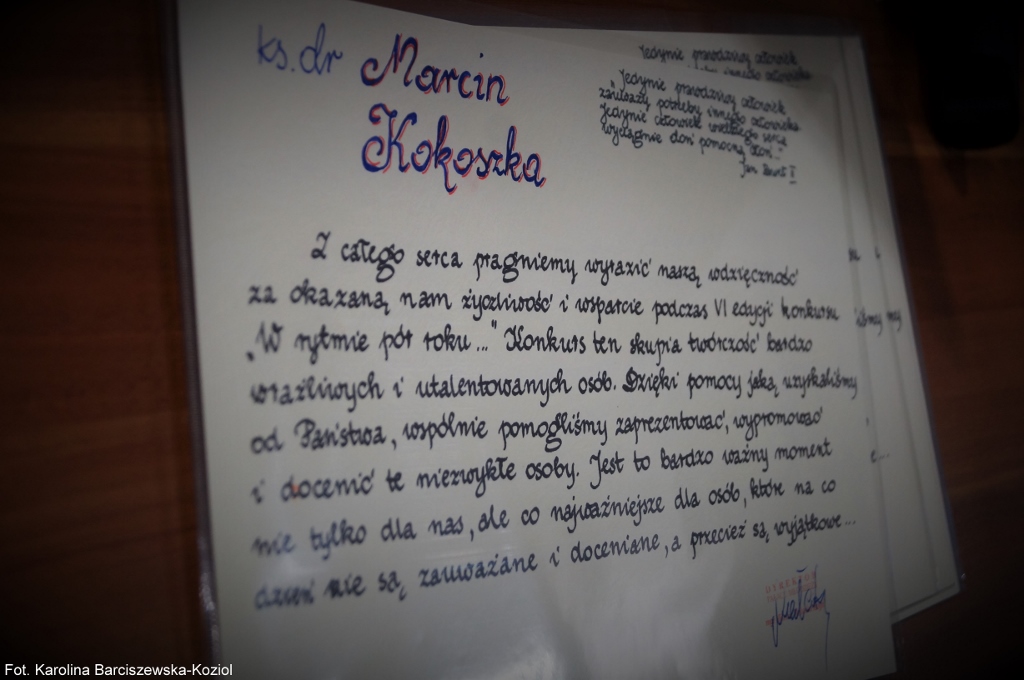 ks. dr Marcin
Kokoszka
Jedynie prawdziwy człowiek
"Jedynie prawdziwy człowiek
zauważy potrzeby innego człowieka
Jedynie człowiek wielkiego serca
wyciągnie doń pomocną dłoń..."
Jan Paweł II
Z całego serca pragniemy wyrazić naszą wdzięczność
za okazaną nam życzliwość i wsparcie podczas VI edycji konkursu
„W rytmie pór roku..." Konkurs ten skupia twórczość bardzo
wrażliwych i utalentowanych osób. Dzięki pomocy jaką uzyskaliśmy
od Państwa, wspólnie pomogliśmy zaprezentować, wypromować
i docenić te niezwykłe osoby. Jest to bardzo ważny moment
nie tylko dla nas, ale co najważniejsze dla osób, które na co
dzień nie są zauważane i doceniane, a przecież są wyjątkowe...
DYREKTOR
Fot. Karolina Barciszewska-Koziol